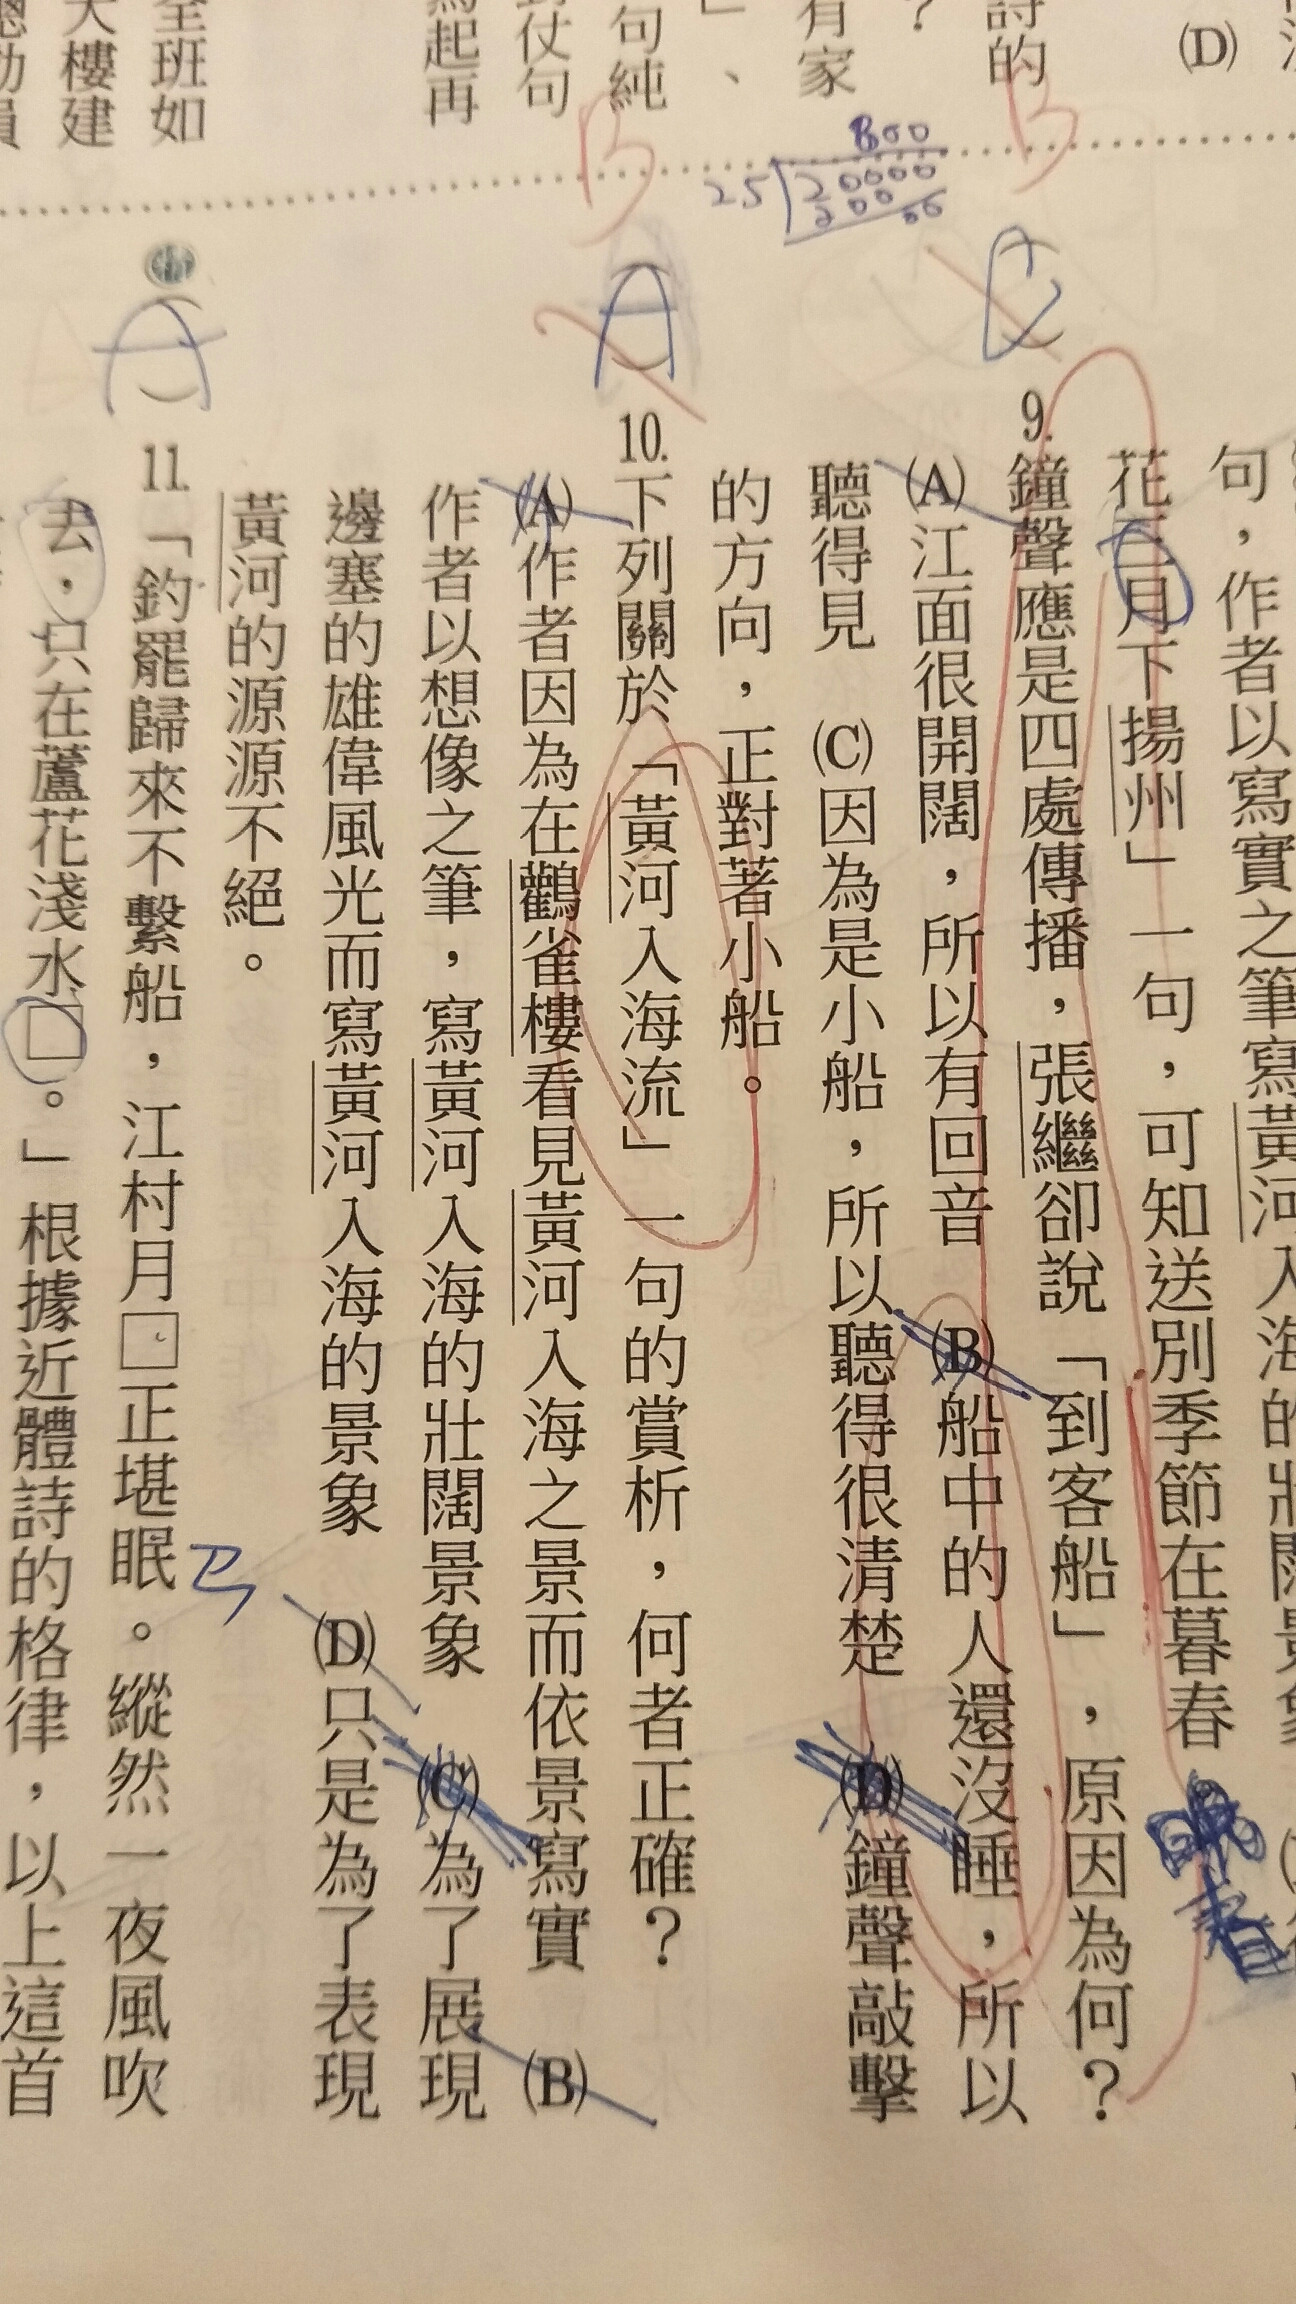 詩的
？
有家
」、
句純
仗句
起再
全班如
大樓建
(D)
B
B
800
25
20000
200
C
A
A
句，作者以寫實之筆寫黃河入海的壯闊景象
花三月下揚州」一句，可知送別季節在暮春
9.鐘聲應是四處傳播，張繼卻說「到客船」，原因為何？
(A)江面很開闊，所以有回音　(B)船中的人還沒睡，所以
聽得見　(C)因為是小船，所以聽得很清楚　(D)鐘聲敲擊
的方向，正對著小船。
10.下列關於「黃河入海流」一句的賞析，何者正確？
(A)作者因為在鸛雀樓看見黃河入海之景而依景寫實　(B)
作者以想像之筆，寫黃河入海的壯闊景象　(C)為了展現
邊塞的雄偉風光而寫黃河入海的景象　(D)只是為了表現
黃河的源源不絕。
11.「釣罷歸來不繫船，江村月□正堪眠。縱然一夜風吹
去，只在蘆花淺水□。」根據近體詩的格律，以上這首
ㄢ